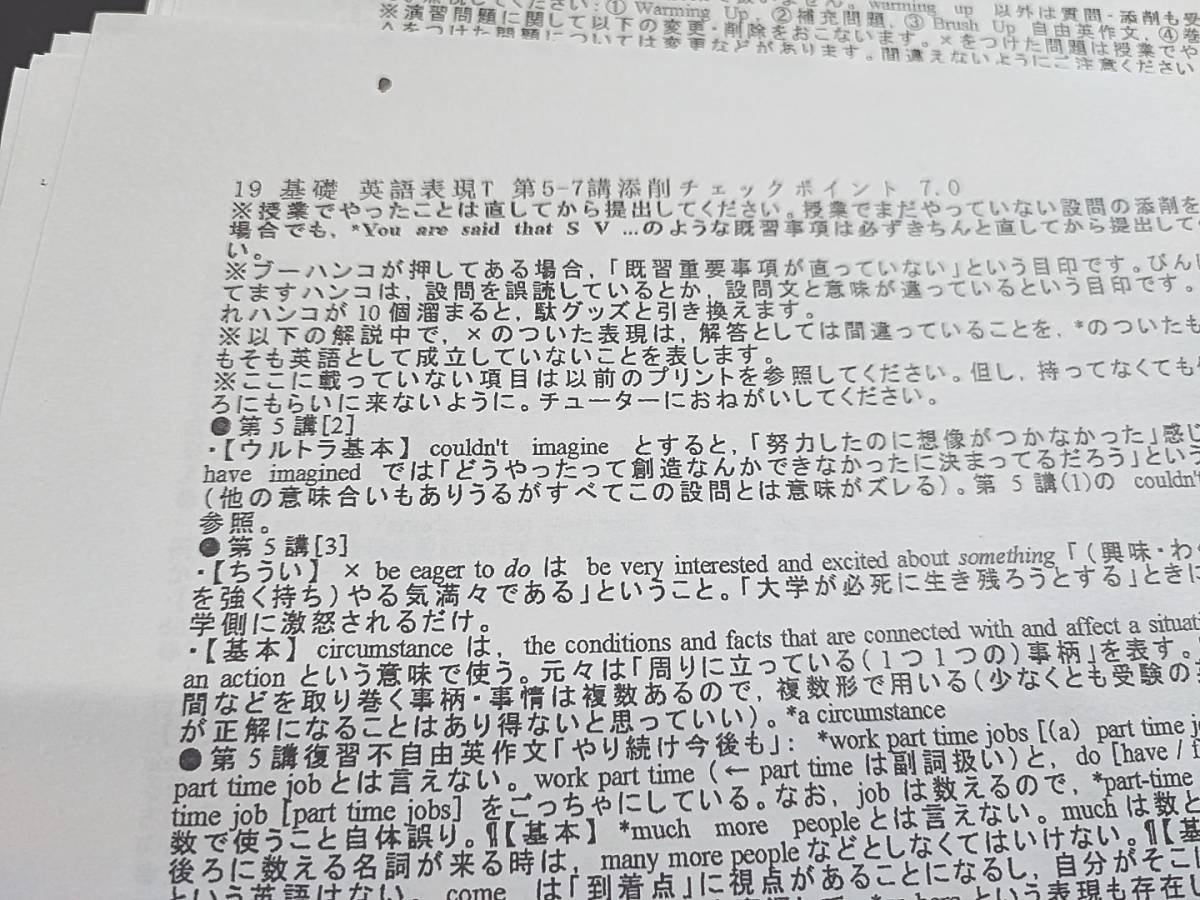 無視してください:① Warming Up, ②補充問題, ③ Brush Up 自由英作文, ④巻
warming up 以外は質問・添削も受
※演習問題に関して以下の変更・削除をおこないます。×をつけた問題は授業でや
をつけた問題については変更などがあります。間違えないようにご注意ください
19 基礎 英語表現T 第5-7講添削チェックポイント 7.0
※授業でやったことは直してから提出してください。授業でまだやっていない設問の添削を
場合でも, *You are said that S V ...のような既習事項は必ずきちんと直してから提出して
い。
※ブーハンコが押してある場合,「既習重要事項が直っていない」という目印です。びん
てますハンコは, 設問を誤読しているとか, 設問文と意味が違っているという目印です。
れハンコが 10 個溜まると, 駄グッズと引き換えます。
※以下の解説中で, ×のついた表現は, 解答としては間違っていることを, *のついたも
もそも英語として成立していないことを表します。
※ここに載っていない項目は以前のプリントを参照してください。但し, 持ってなくても
ろにもらいに来ないように。チューターにおねがいしてください。
●第 5 講[2]
・【ウルトラ基本】 couldn't imagine とすると,「努力したのに想像がつかなかった」感じ
have imagined では「どうやったって創造なんかできなかったに決まってるだろう」という
(他の意味合いもありうるがすべてこの設問とは意味がズレる)。第 5 講(1)の couldn't
参照。
●第 5 講[3]
・【ちうい】 × be eager to do は be very interested and excited about something「(興味・わ
を強く持ち)やる気満々である」ということ。「大学が必死に生き残ろうとする」ときに
学側に激怒されるだけ。
・【基本】 circumstance は, the conditions and facts that are connected with and affect a situati
an action という意味で使う。元々は「周りに立っている(1つ1つの)事柄」を表す。
間などを取り巻く事柄・事情は複数あるので, 複数形で用いる(少なくとも受験の
が正解になることはあり得ないと思っていい)。*a circumstance
●第 5 講復習不自由英作文「やり続け今後も」: *work part time jobs [(a) part time jo
part time job とは言えない。work part time (← part time は副詞扱い)と, do [have / f
time job [part time jobs] をごっちゃにしている。なお, job は数えるので, *part-time
数で使うこと自体誤り。¶【基本】 *much more people とは言えない。much は数と
後ろに数える名詞が来る時は, many more people などとしなくてはいけない。¶【基
という英語はない。 come は「到着点」に視点があることになるし, 自分がそこに
here という表現も存在し